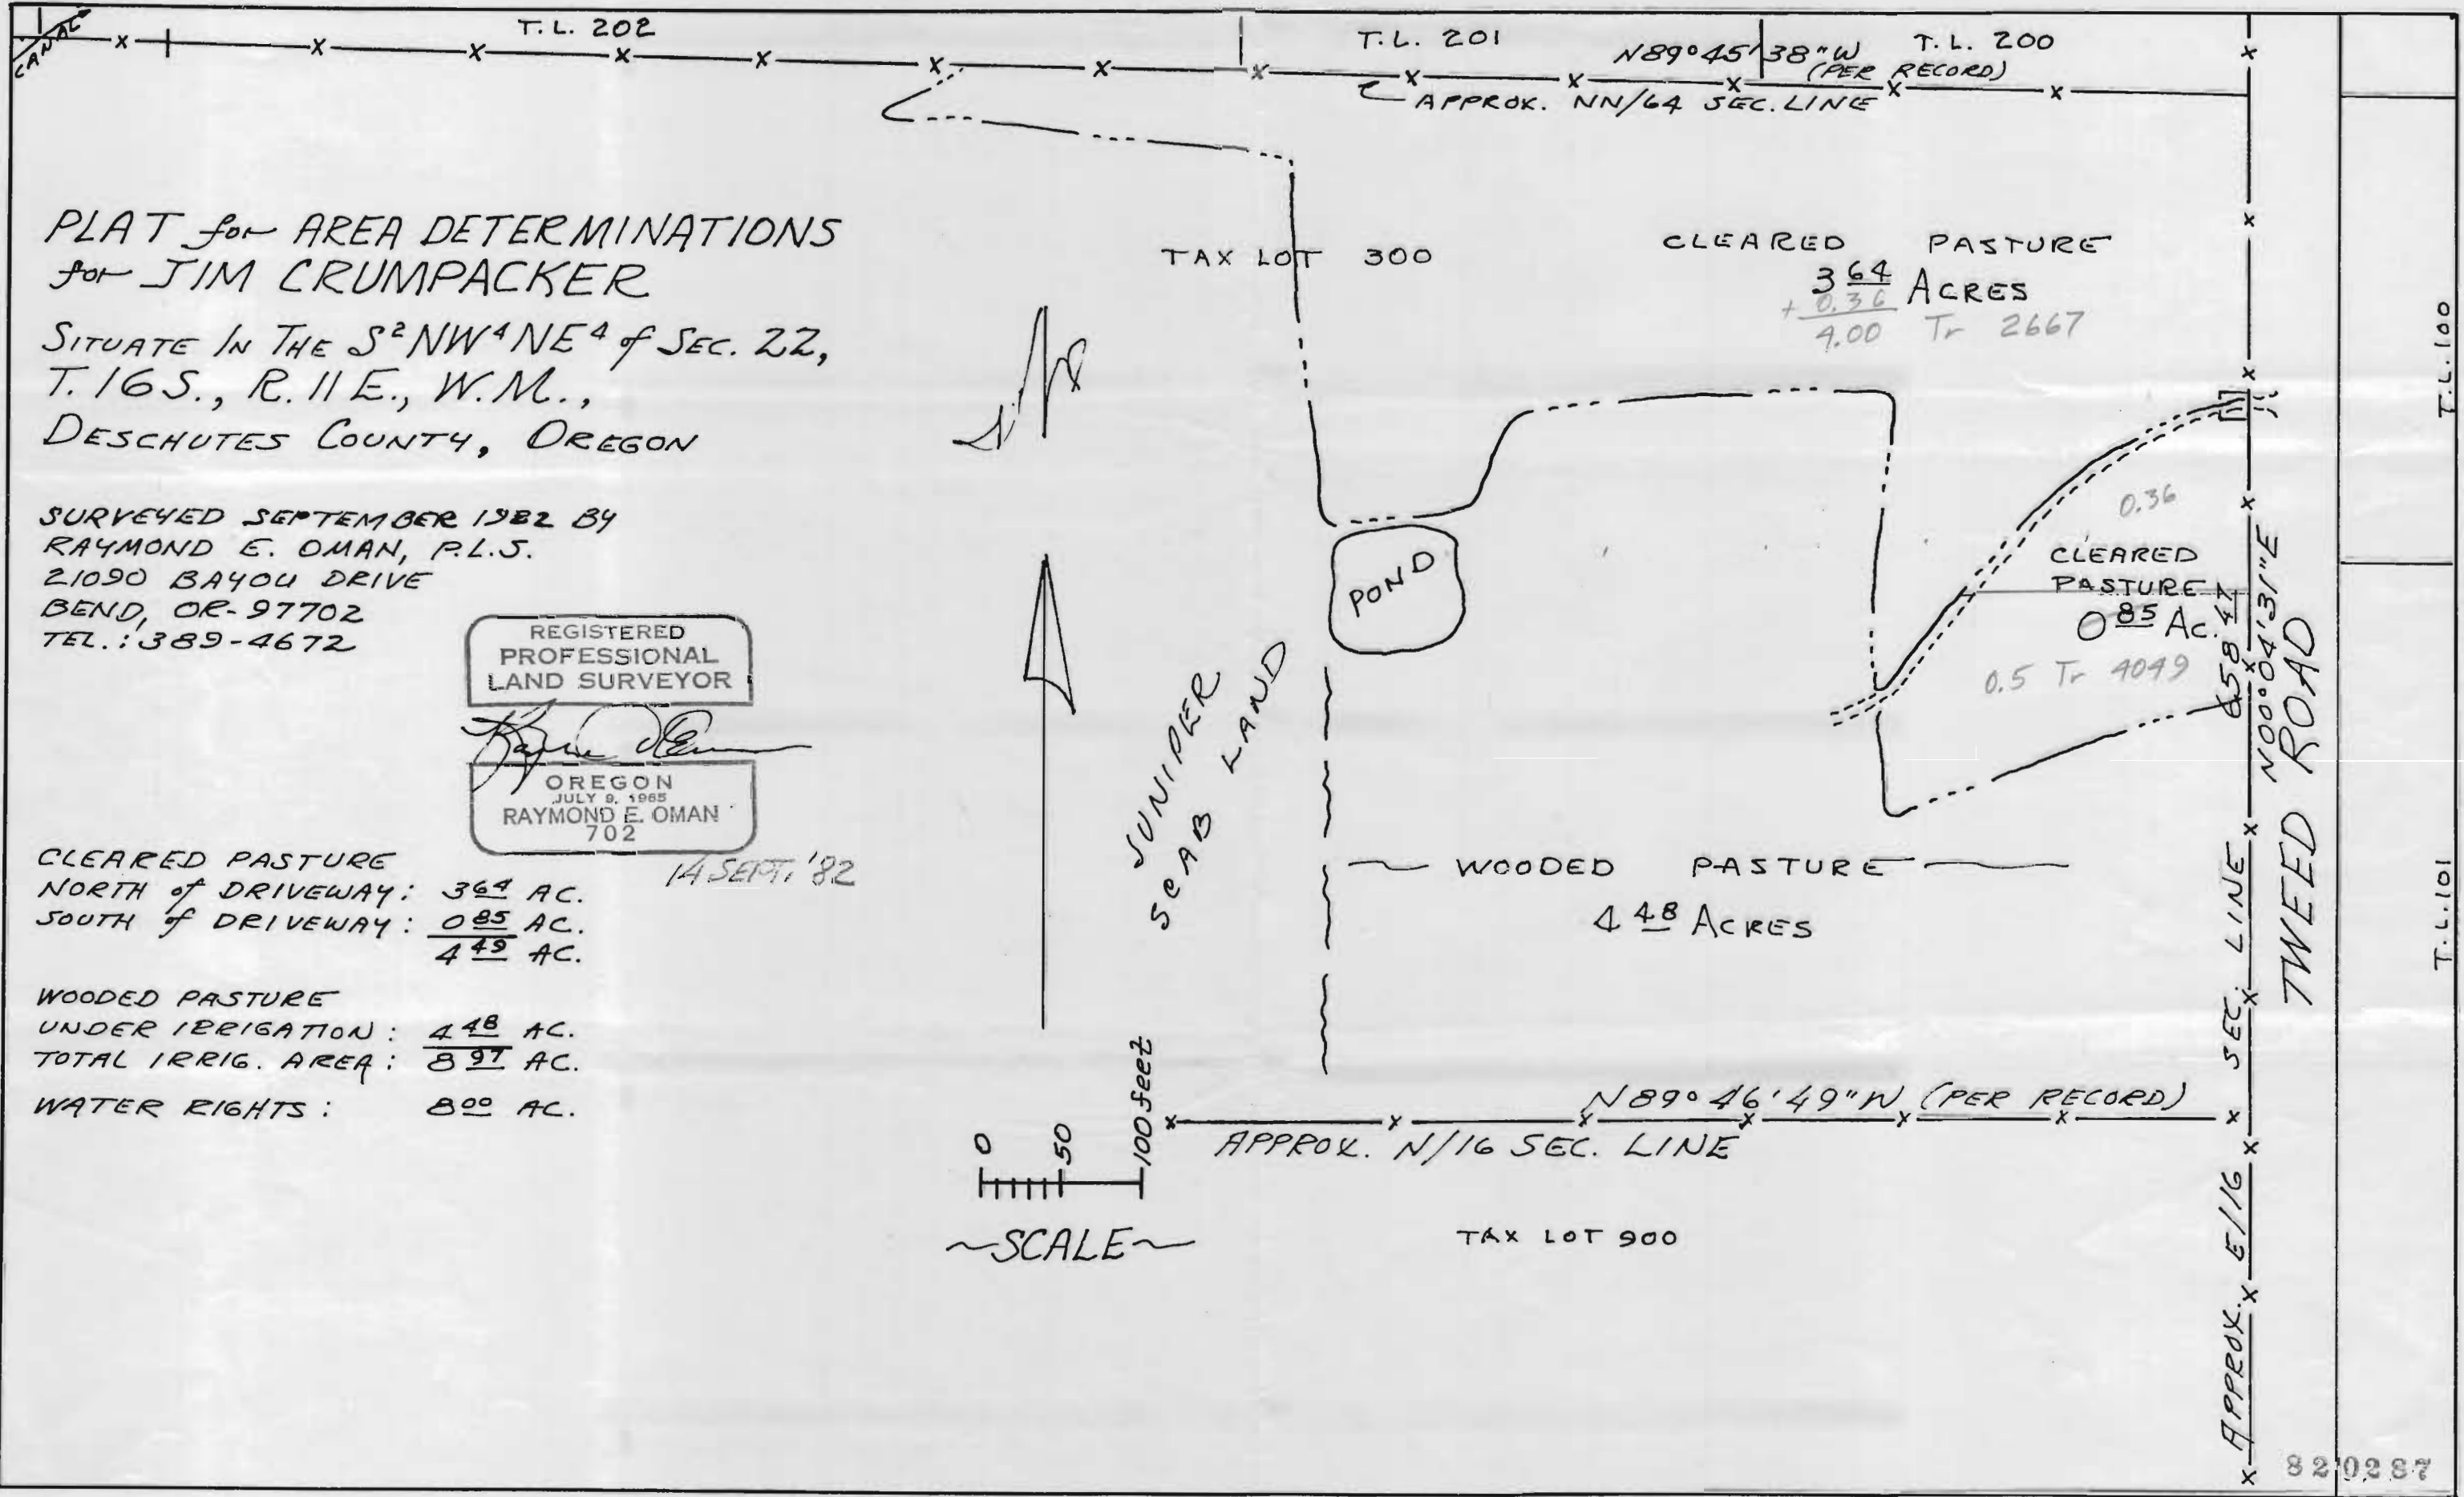 CANAL
T.L. 202
T.L. 201
N89°45'38"W
(PER RECORD)
T.L. 200
APPROX. NN/64 SEC. LINE
PLAT for AREA DETERMINATIONS
for JIM CRUMPACKER
SITUATE IN THE S²NW⁴NE⁴ of SEC. 22,
T.16S., R.11E., W.M.,
DESCHUTES COUNTY, OREGON
SURVEYED SEPTEMBER 1982 BY
RAYMOND E. OMAN, P.L.S.
21090 BAYOU DRIVE
BEND, OR-97702
TEL.: 389-4672
REGISTERED
PROFESSIONAL
LAND SURVEYOR
OREGON
JULY 9, 1965
RAYMOND E. OMAN
702
14 SEPT. '82
CLEARED PASTURE
NORTH of DRIVEWAY: 3 64 AC.
SOUTH of DRIVEWAY: 0 85 AC.
4 49 AC.
WOODED PASTURE
UNDER IRRIGATION: 4 48 AC.
TOTAL IRRIG. AREA: 8 97 AC.
WATER RIGHTS: 8 00 AC.
N
TAX LOT 300
CLEARED PASTURE
3 64 ACRES
+ 0.36
4.00 Tr 2667
POND
JUNIPER
SCAB LAND
0.36
CLEARED
PASTURE
0 85 Ac.
0.5 Tr 4049
WOODED PASTURE
4 48 ACRES
658 47
N00°04'31"E
TWEED ROAD
T.L. 100
T.L. 101
N89°46'49"W (PER RECORD)
APPROX. N/16 SEC. LINE
APPROX. E/16 SEC. LINE
0 50 100 feet
~SCALE~
TAX LOT 900
820287